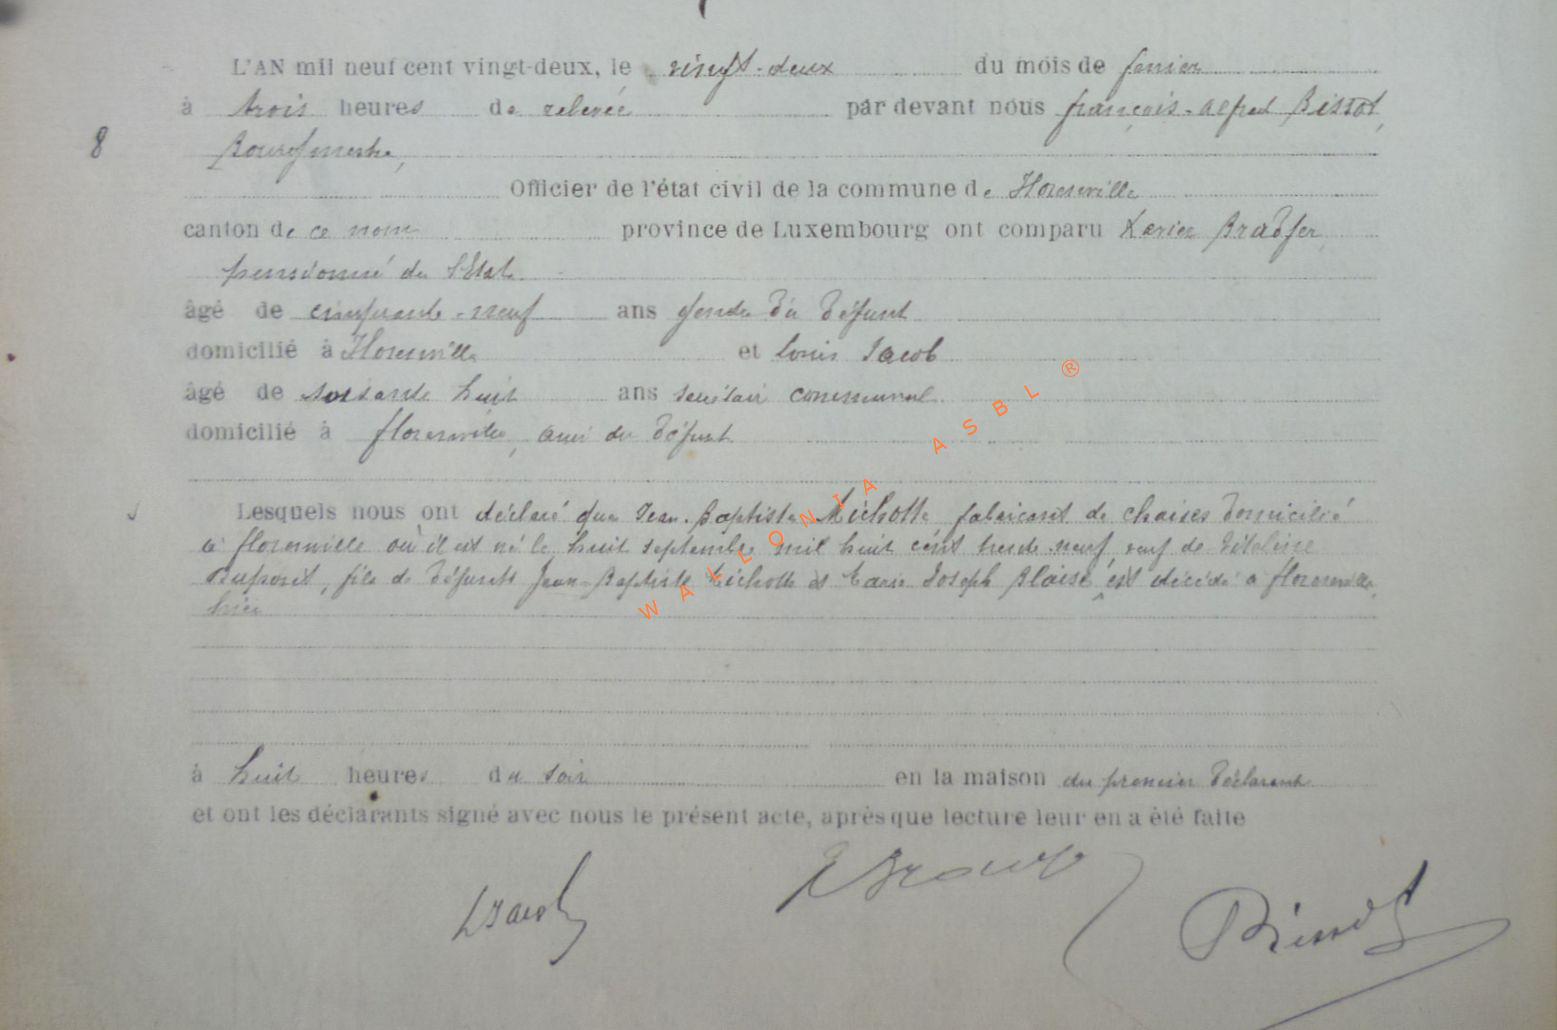 L'AN mil neuf cent vingt-deux, le vingt-deux du mois de janvier
à trois heures de relevée par devant nous françois-alfred Bissot,
8 Bourgmestre,
Officier de l'état civil de la commune de Florenville
canton de ce nom province de Luxembourg ont comparu Xavier
pensionné de l'Etat
âgé de cinquante-neuf ans gendre du défunt
domicilié à Florenville et Louis Jacob
âgé de soixante huit ans secrétaire communal
domicilié à florenville, ami du défunt
Lesquels nous ont déclaré que Jean-Baptiste Michotte fabricant de chaises domicilié
à florenville où il est né le huit septembre mil huit cent trente-neuf, veuf de
Dupont, fils de défunts Jean-Baptiste Michotte et Marie Joseph Blaise, est décédé à florenville,
hier
à huit heures du soir en la maison du premier déclarant
et ont les déclarants signé avec nous le présent acte, après que lecture leur en a été faite
LJacob Bissot
WALLONIA ASBL ®